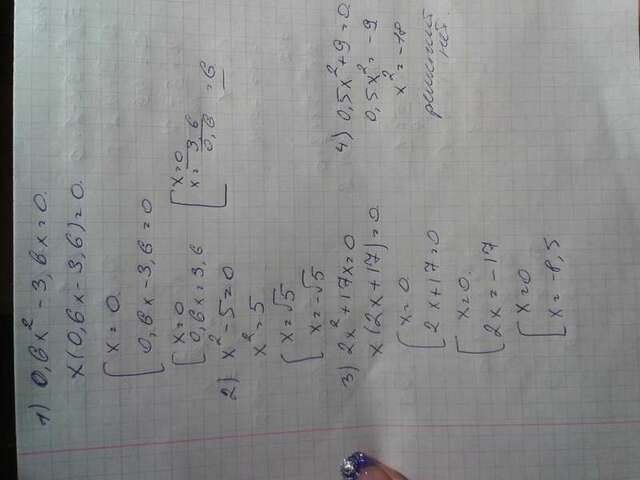 1) 0,6x² - 3,6x = 0.
x(0,6x - 3,6) = 0.
[ x = 0.
0,6x - 3,6 = 0
[ x = 0
0,6x = 3,6
[ x = 0
x = 3,6/0,6 = 6
2) x² - 5 = 0
x² = 5
[ x = √5
x = -√5
3) 2x² + 17x = 0
x(2x + 17) = 0.
[ x = 0.
2x + 17 = 0
[ x = 0.
2x = -17
[ x = 0
x = -8,5
4) 0,5x² + 9 = 0.
0,5x² = -9
x² = -18
решений
нет.